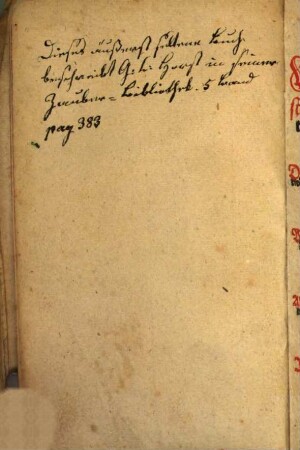 Dieses äußerst seltene Buch
beschreibt G. C. Horst in seiner
Zauber-Bibliothek. 5 Band
pag 383